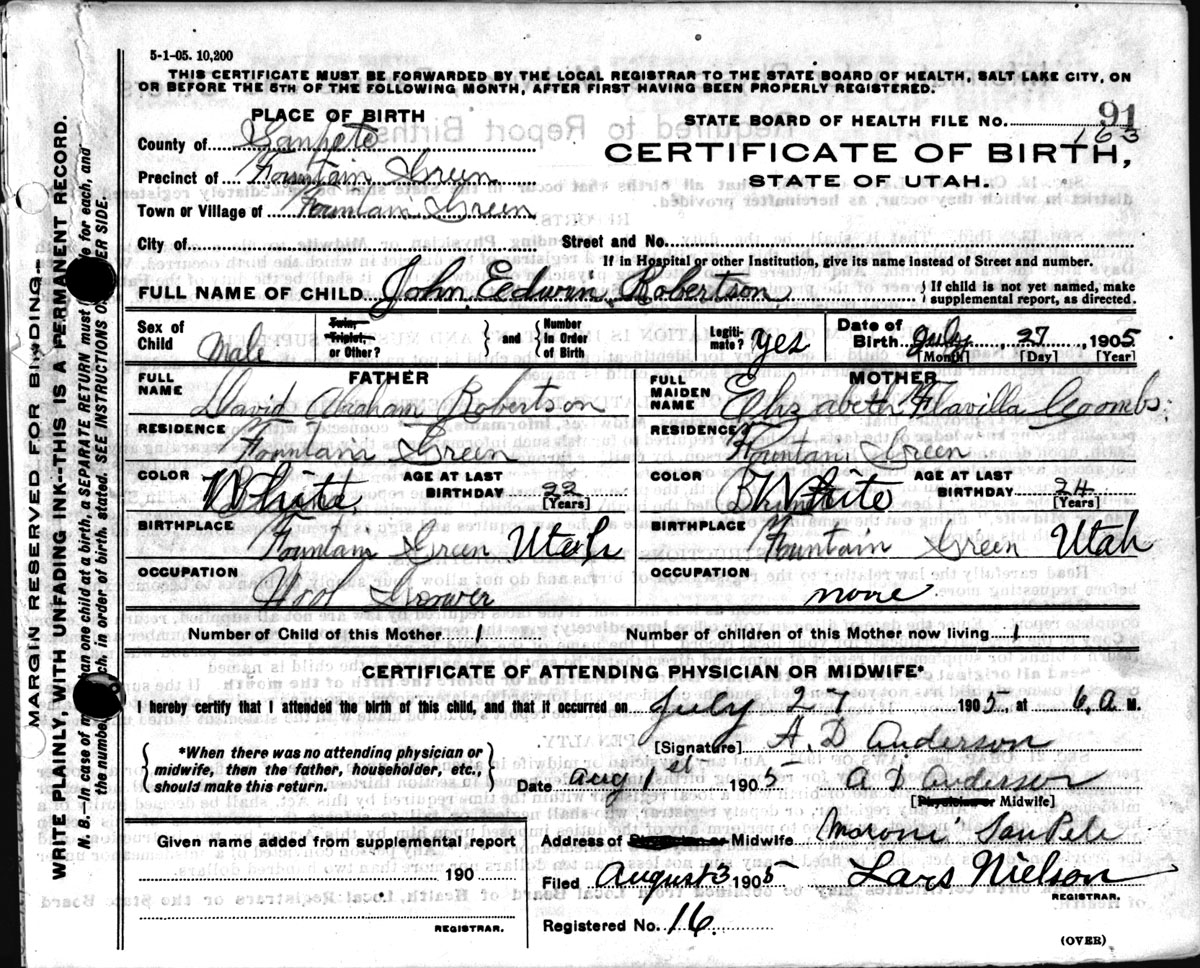 5-1-05. 10,200
THIS CERTIFICATE MUST BE FORWARDED BY THE LOCAL REGISTRAR TO THE STATE BOARD OF HEALTH, SALT LAKE CITY, ON
OR BEFORE THE 5TH OF THE FOLLOWING MONTH, AFTER FIRST HAVING BEEN PROPERLY REGISTERED.
PLACE OF BIRTH
County of Sanpete
Precinct of Fountain Green
Town or Village of Fountain Green
STATE BOARD OF HEALTH FILE NO. 91
163
CERTIFICATE OF BIRTH,
STATE OF UTAH.
City of Street and No.
If in Hospital or other Institution, give its name instead of Street and number.
FULL NAME OF CHILD John Eedwin Robertson { If child is not yet named, make supplemental report, as directed.
Sex of Child Male Twin, Triplet, or Other? } and { Number in Order of Birth Legiti- mate? yes Date of Birth July 27 1905
[Month] [Day] [Year]
FATHER
FULL NAME David Abraham Robertson
RESIDENCE Fountain Green
COLOR White AGE AT LAST BIRTHDAY 22 [Years]
BIRTHPLACE Fountain Green Utah
OCCUPATION Wool Grower
MOTHER
FULL MAIDEN NAME Elizabeth Flavilla Coombs
RESIDENCE Fountain Green
COLOR White AGE AT LAST BIRTHDAY 24 [Years]
BIRTHPLACE Fountain Green Utah
OCCUPATION none
Number of Child of this Mother 1 Number of children of this Mother now living 1
CERTIFICATE OF ATTENDING PHYSICIAN OR MIDWIFE*
I hereby certify that I attended the birth of this child, and that it occurred on July 27 1905, at 6, a M.
{ *When there was no attending physician or midwife, then the father, householder, etc., should make this return. }
[Signature] A. D Anderson
Date Aug 1st 1905 A D Anderson
[Physician or Midwife]
Given name added from supplemental report
190
REGISTRAR.
Address of Midwife Moroni SanPete
Filed August 3 1905 Lars Nielson
REGISTRAR.
Registered No. 16
(OVER)
MARGIN RESERVED FOR BINDING.
WRITE PLAINLY, WITH UNFADING INK--THIS IS A PERMANENT RECORD.
N. B. In case of more than one child at a birth, a SEPARATE RETURN must be made for each, and
the number of each, in order of birth stated. SEE INSTRUCTIONS ON OTHER SIDE.